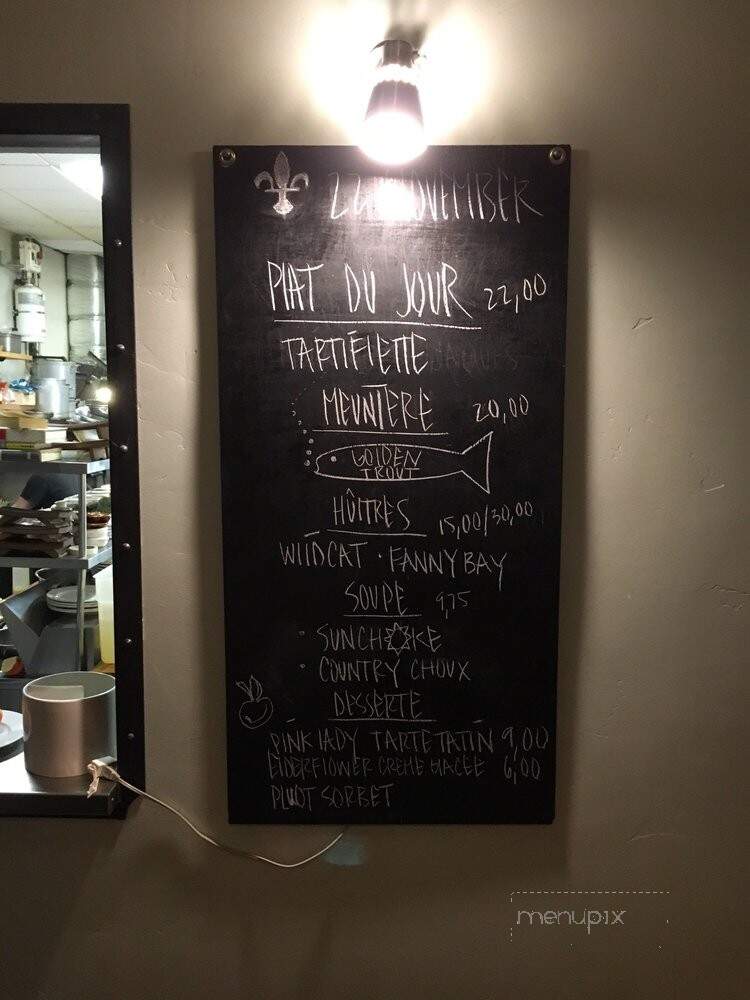 22 NOVEMBER
PLAT DU JOUR 22,00
TARTIFLETTE
MEUNIERE 20,00
GOLDEN
TROUT
HÛITRES 15,00/30,00
WILDCAT · FANNY BAY
SOUPE 9,75
· SUNCHOKE
· COUNTRY CHOUX
DESSERTE
PINK LADY TARTE TATIN 9,00
ELDERFLOWER CREME GLACÉE 6,00
PLUOT SORBET
menupix